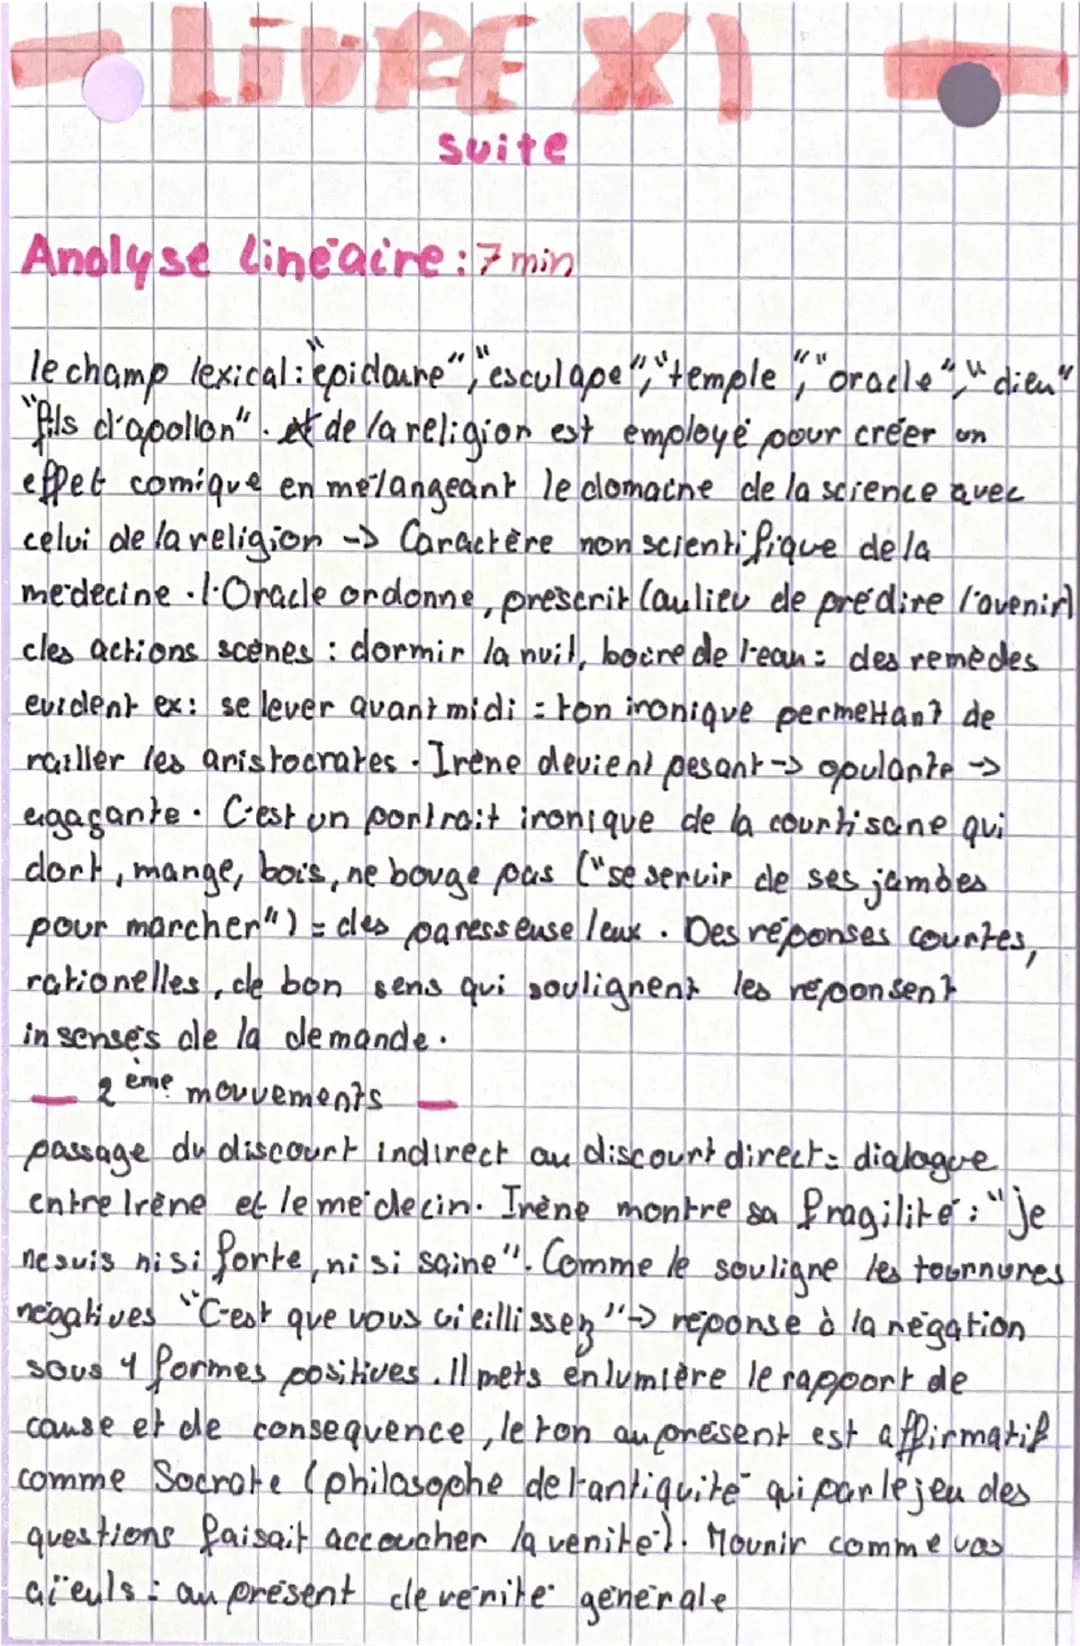 LiVRE XI
suite
Analyse linéaire : 7 min
le champ lexical : "épidaure", "esculape", "temple", "oracle", "dieu"
"fils d'apollon". de la religion est employé pour créer un
effet comique en mélangeant le domaine de la science avec
celui de la religion -> Caractère non scientifique de la
médecine. l'Oracle ordonne, prescrit (au lieu de prédire l'avenir)
des actions scènes : dormir la nuit, boire de l'eau = des remèdes
évident ex: se lever avant midi = ton ironique permettant de
railler les aristocrates. Irène devient pesant -> opulante ->
agaçante. C'est un portrait ironique de la courtisane qui
dort, mange, bois, ne bouge pas ("se servir de ses jambes
pour marcher") = des paresseuse leux. Des réponses courtes,
rationelles, de bon sens qui soulignent les réponsent
insensés de la demande.
— 2ème mouvements —
passage du discourt indirect au discourt direct = dialogue
entre Irène et le médecin. Irène montre sa fragilité : "je
ne suis ni si forte, ni si saine". Comme le souligne les tournures
négatives "C'est que vous vieillissez" -> réponse à la négation
sous 4 formes positives. Il mets en lumière le rapport de
cause et de conséquence, le ton au présent est affirmatif
comme Socrate (philosophe de l'antiquité qui par le jeu des
questions faisait accoucher la vérité). Mourir comme vos
aïeuls : au présent de vérité générale